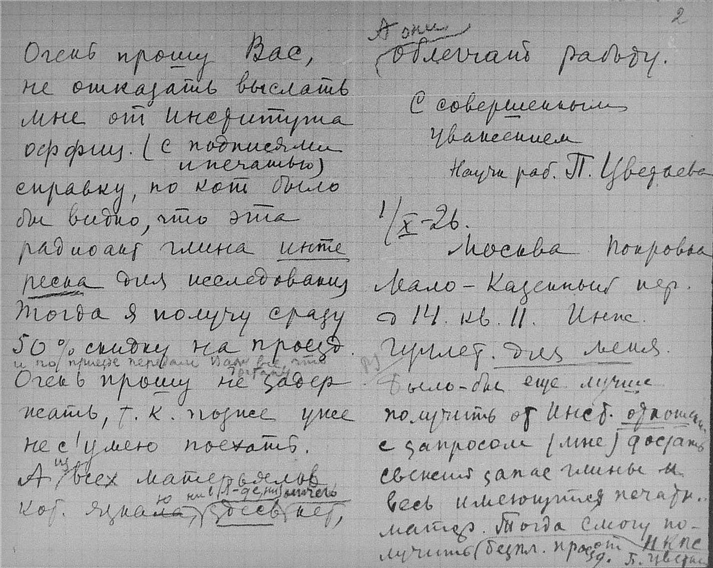 2
Очень прошу Вас,
не отказать выслать
мне от Института
оффиц. (с подписями
и печатью)
справку, по кот было
бы видно, что эта
радиоакт глина инте
ресна для исследования
Тогда я получу сразу
50% скидку на проезд.
и по приезде передам Вам все, что
Очень прошу не задер
жать, т. к. позже уже
не сумею поехать.
А из всех матерьялов
кот. я знаю, здесь нет,
А они
облегчают работу.
С совершенным
уважением
Научн раб. П. Цветаева
1/X-26.
Москва Покровка
Мало-Казенный пер.
д 14. кв. 11. Инж.
для меня.
Было-бы еще лучше
получить от Инст.
с запросом (мне) достать
свежий запас глины и
весь имеющийся печатн.
матер. Тогда смогу по-
лучить (безпл. проезд. от НКПС
П. Цветаева